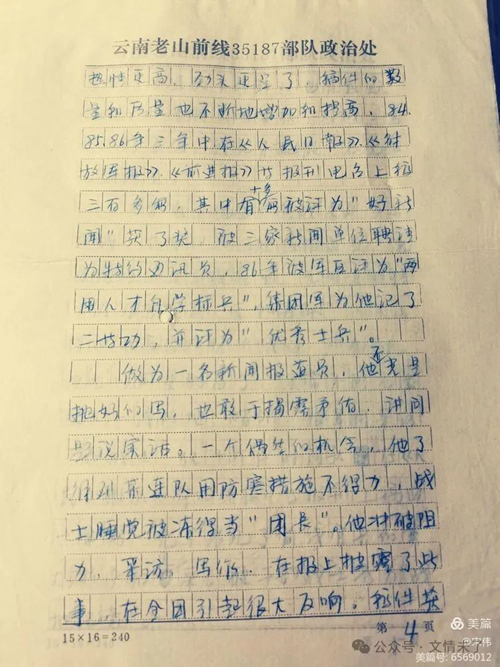 云南老山前线35187部队政治处
热情更高，劲头更足了，稿件的数
量和质量也不断地增加和提高，84.
85.86年三年中在《人民日报》.《解
放军报》.《前进报》等报刊电台上稿
三百多篇，其中有十多篇被评为“好新
闻”获了奖，被三家新闻单位聘请
为特约通讯员，86年被军区评为“两
用人才自学标兵”，集团军为他记了
二等功，并评为“优秀士兵”。
做为一名新闻报道员，他不光是
挑好的写，也敢于揭露矛盾，讲问
题说实话。一个偶然的机会，他了
得到某连队因防寒措施不得力，战
士睡觉被冻得当“团长”。他冲破阻
力，采访，写稿，在报上披露了此
事，在全团引起很大反响。稿件获
15×16=240
第4页
美篇
@字伟
公众号·文情未了
美篇号：6569012